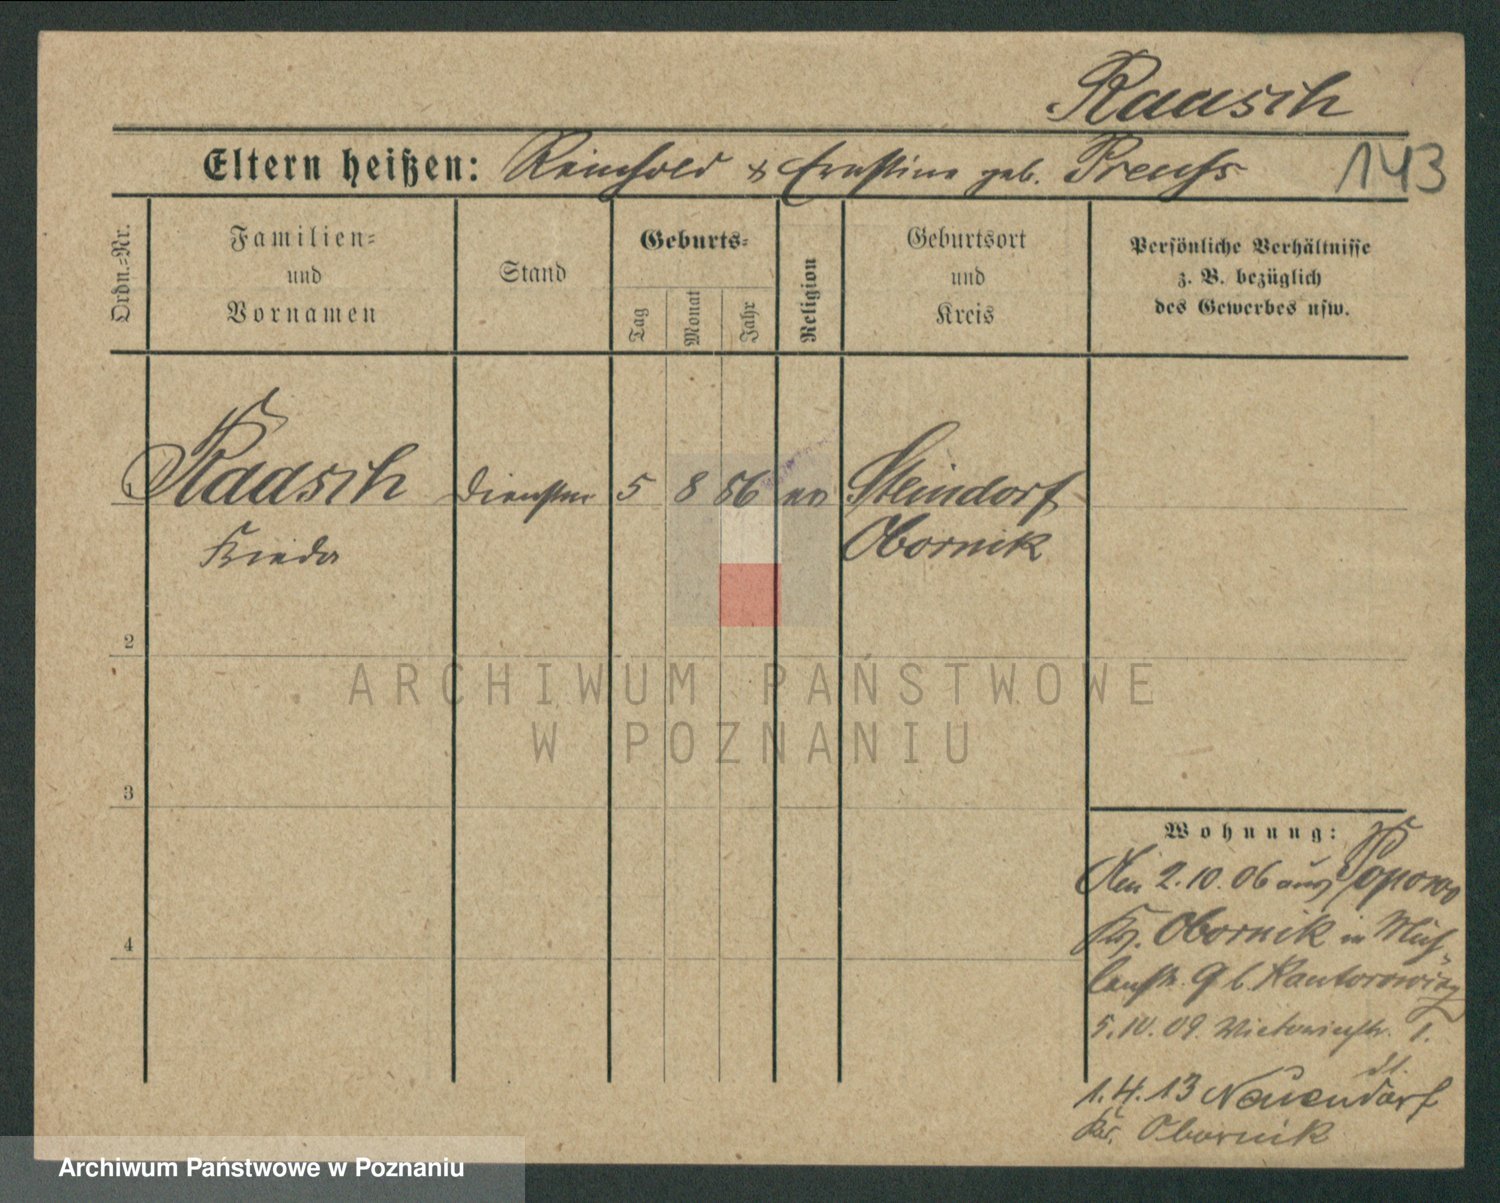 Raasch
Eltern heißen: Reinhold & Ernstine geb. Preuß
143
Ordn.-Nr.
Familien-
und
Vornamen
Stand
Geburts-
Tag
Monat
Jahr
Religion
Geburtsort
und
Kreis
Persönliche Verhältnisse
z. B. bezüglich
des Gewerbes usw.
Raasch
5
8
86
ev
Steindorf
Frieda
Obornik
2
3
4
Wohnung:
Den 2.10.06 aus Popowo
Krs. Obornik in Müh-
lenstr. 9 b. Kantorowicz
5.10.09. Victoriastr. 1.
1.4.13 Neuendorf
Kr. Obornik
ARCHIWUM PAŃSTWOWE
W POZNANIU
Archiwum Państwowe w Poznaniu